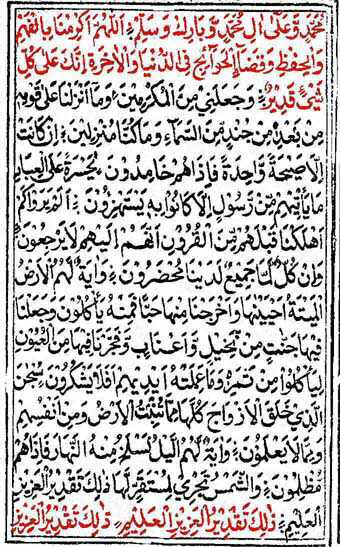 مُحَمَّدٍ وَّعَلٰى اٰلِ مُحَمَّدٍ وَّبَارِكْ وَسَلِّمْ اَللّٰهُمَّ اَكْرِمْنَا بِالْفَهْمِ
وَالْحِفْظِ وَقَضَاءِ الْحَوَائِجِ فِى الدُّنْيَا وَالْاٰخِرَةِ اِنَّكَ عَلٰى كُلِّ
شَىْءٍ قَدِيْرٌ وَجَعَلَنِيْ مِنَ الْمُكْرَمِيْنَ وَمَا اَنْزَلْنَا عَلٰى قَوْمِهٖ
مِنْ بَعْدِهٖ مِنْ جُنْدٍ مِّنَ السَّمَاءِ وَمَا كُنَّا مُنْزِلِيْنَ اِنْ كَانَتْ
اِلَّا صَيْحَةً وَّاحِدَةً فَاِذَا هُمْ خَامِدُوْنَ يٰحَسْرَةً عَلَى الْعِبَادِ
مَا يَأْتِيْهِمْ مِّنْ رَّسُوْلٍ اِلَّا كَانُوْا بِهٖ يَسْتَهْزِؤُنَ اَلَمْ يَرَوْا كَمْ
اَهْلَكْنَا قَبْلَهُمْ مِّنَ الْقُرُوْنِ اَنَّهُمْ اِلَيْهِمْ لَا يَرْجِعُوْنَ
وَاِنْ كُلٌّ لَّمَّا جَمِيْعٌ لَّدَيْنَا مُحْضَرُوْنَ وَاٰيَةٌ لَّهُمُ الْاَرْضُ
الْمَيْتَةُ اَحْيَيْنٰهَا وَاَخْرَجْنَا مِنْهَا حَبًّا فَمِنْهُ يَأْكُلُوْنَ وَجَعَلْنَا
فِيْهَا جَنّٰتٍ مِّنْ نَّخِيْلٍ وَّاَعْنَابٍ وَّفَجَّرْنَا فِيْهَا مِنَ الْعُيُوْنِ
لِيَأْكُلُوْا مِنْ ثَمَرِهٖ وَمَا عَمِلَتْهُ اَيْدِيْهِمْ اَفَلَا يَشْكُرُوْنَ سُبْحٰنَ
الَّذِيْ خَلَقَ الْاَزْوَاجَ كُلَّهَا مِمَّا تُنْبِتُ الْاَرْضُ وَمِنْ اَنْفُسِهِمْ
وَمِمَّا لَا يَعْلَمُوْنَ وَاٰيَةٌ لَّهُمُ الَّيْلُ نَسْلَخُ مِنْهُ النَّهَارَ فَاِذَا هُمْ
مُّظْلِمُوْنَ وَالشَّمْسُ تَجْرِيْ لِمُسْتَقَرٍّ لَّهَا ذٰلِكَ تَقْدِيْرُ الْعَزِيْزِ
الْعَلِيْمِ ذٰلِكَ تَقْدِيْرُ الْعَزِيْزِ الْعَلِيْمِ ذٰلِكَ تَقْدِيْرُ الْعَزِيْزِ